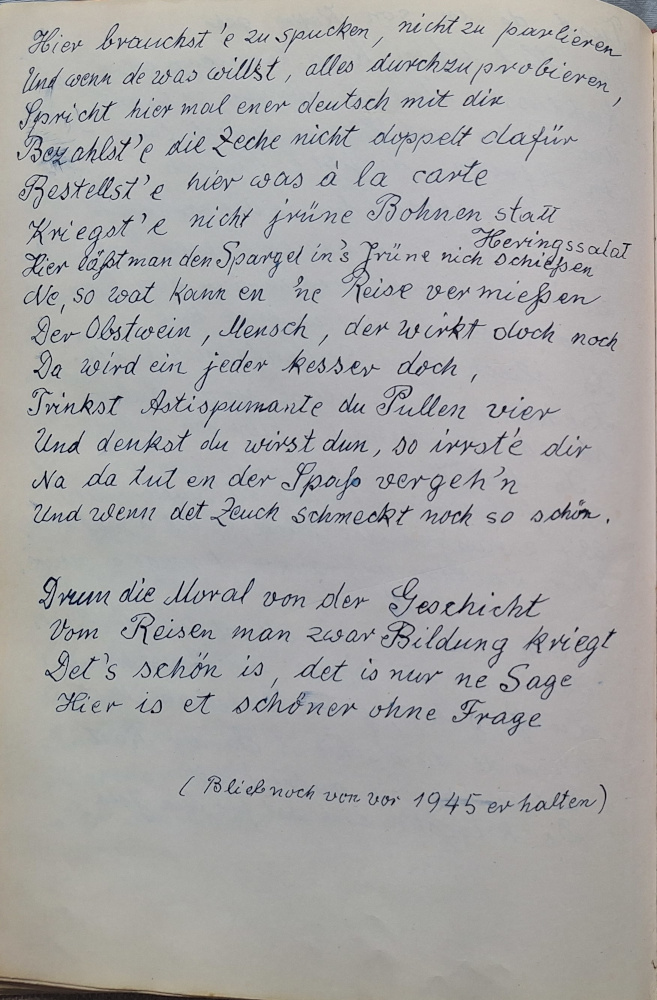 Hier brauchst'e zu spucken, nicht zu parlieren
Und wenn de was willst, alles durchzuprobieren,
Spricht hier mal ener deutsch mit dir
Bezahlst'e die Zeche nicht doppelt dafür
Bestellst'e hier was à la carte
Kriegst'e nicht jrüne Bohnen statt
Heringssalat
Hier läßt man den Spargel in's Jrüne nich schießen
Ne, so wat kann en 'ne Reise vermießen
Der Obstwein, Mensch, der wirkt doch noch
Da wird ein jeder kesser doch,
Trinkst Astispumante du Pullen vier
Und denkst du wirst dun, so irrst'e dir
Na da tut en der Spaß vergeh'n
Und wenn det Zeuch schmeckt noch so schön.
Drum die Moral von der Geschicht
Vom Reisen man zwar Bildung kriegt
Det's schön is, det is nur ne Sage
Hier is et schöner ohne Frage
(Blieb noch von vor 1945 erhalten)